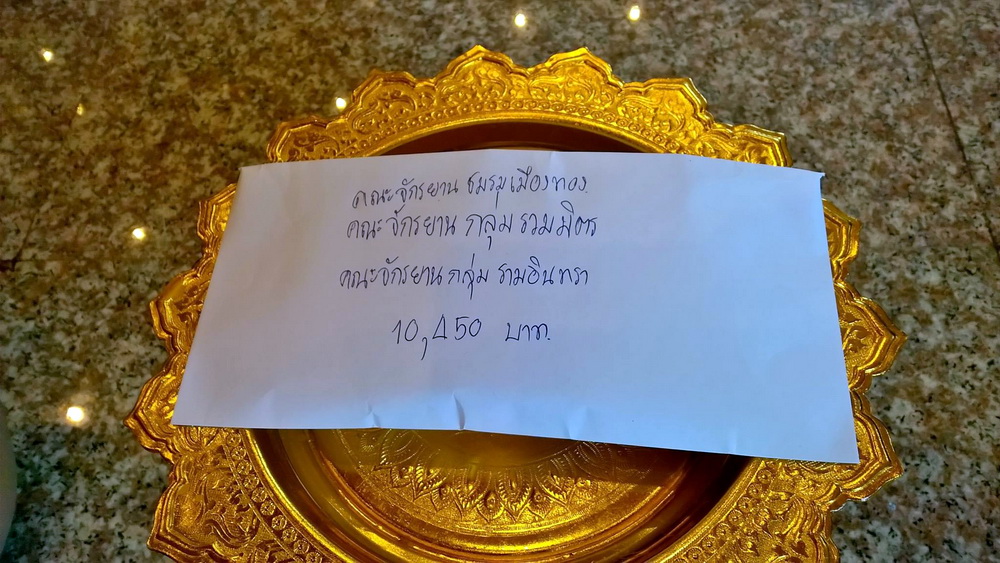 คณะจักรยาน ชมรมเมืองทอง
คณะจักรยาน กลุ่มรวมมิตร
คณะจักรยาน กลุ่ม รามอินทรา
10,450 บาท.